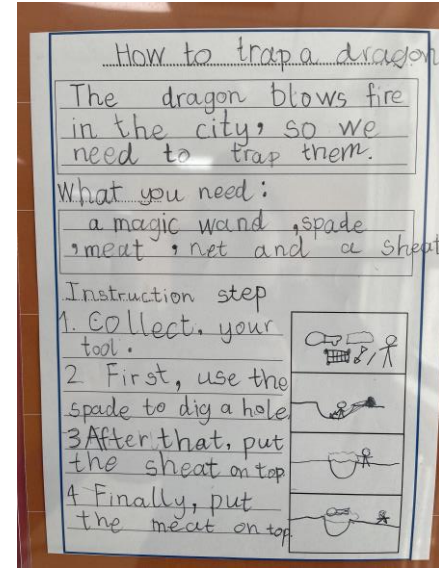 How to trap a dragon
The dragon blows fire
in the city, so we
need to trap them.
What you need:
a magic wand ,spade
,meat , net and a sheat
Instruction step
1. Collect. your
tool.
2 First, use the
spade to dig a hole.
3 After that, put
the sheat on top
4 Finally, put
the meat on top.